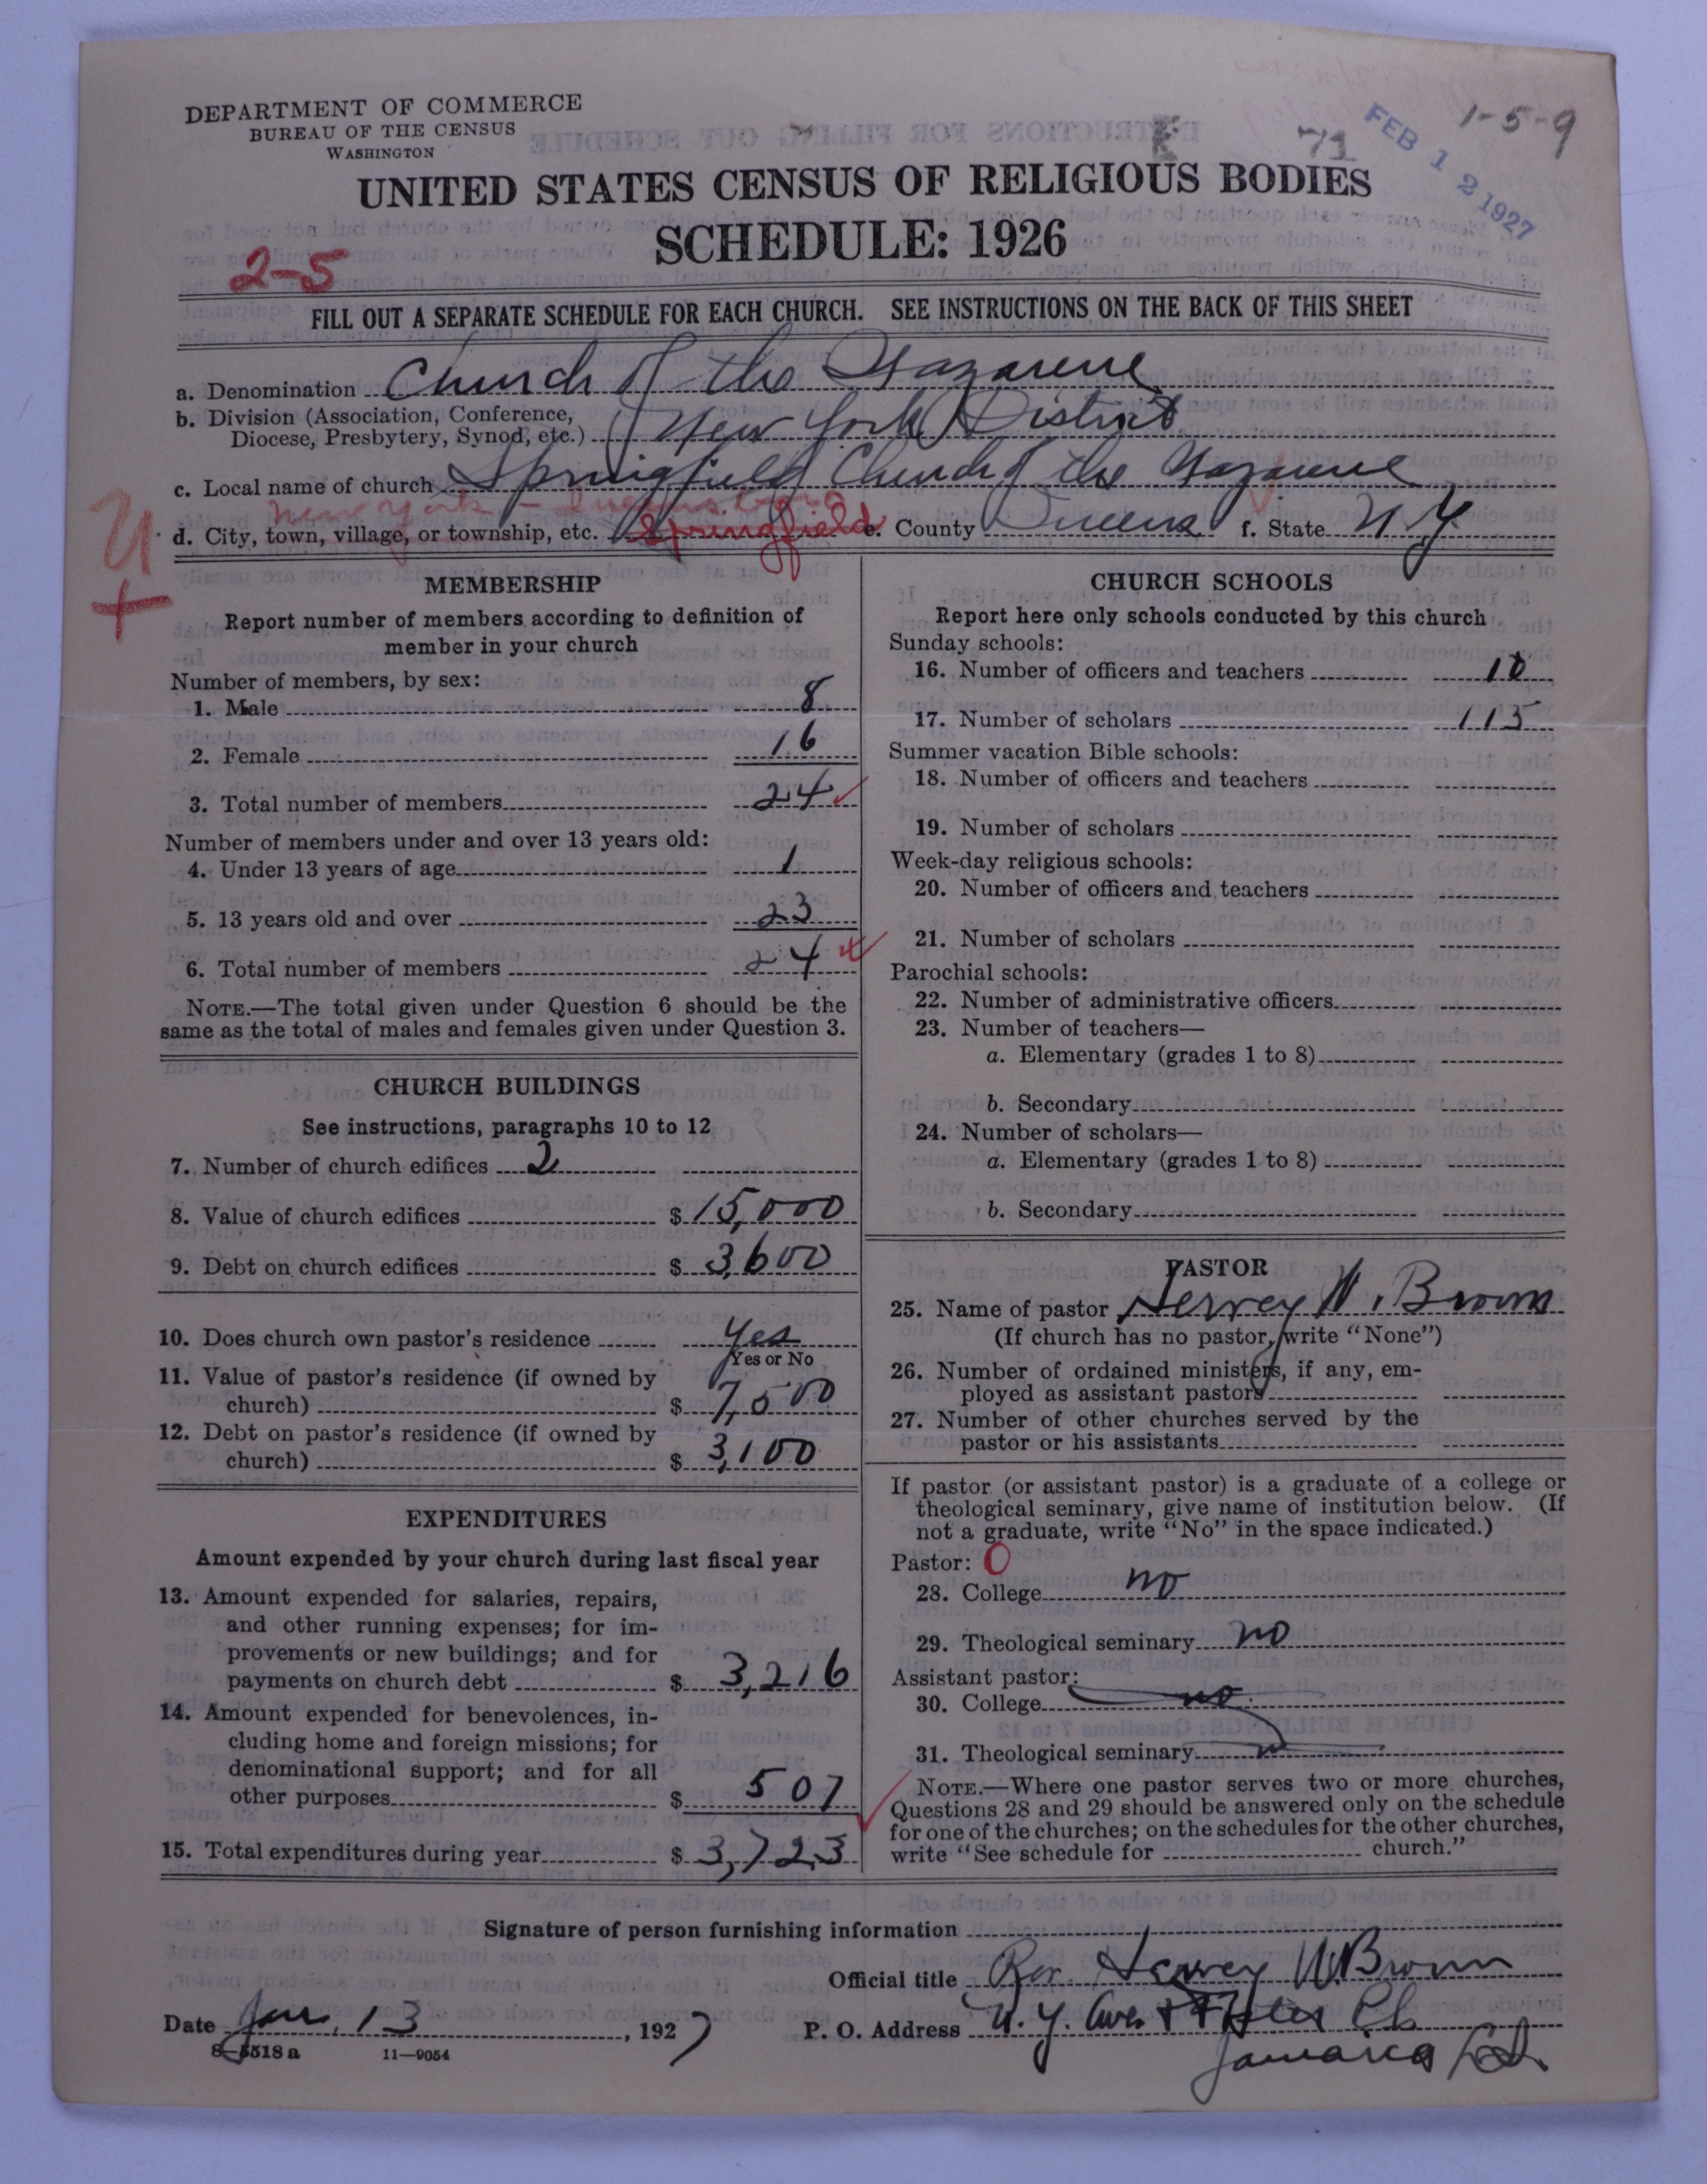 DEPARTMENT OF COMMERCE
BUREAU OF THE CENSUS
WASHINGTON
1-5-9
71
FEB 12 1927
UNITED STATES CENSUS OF RELIGIOUS BODIES
SCHEDULE: 1926
2-5
FILL OUT A SEPARATE SCHEDULE FOR EACH CHURCH. SEE INSTRUCTIONS ON THE BACK OF THIS SHEET
a. Denomination Church of the Nazarene
b. Division (Association, Conference,
Diocese, Presbytery, Synod, etc.) New York District
c. Local name of church Springfield Church of the Nazarene
New York - Queens
d. City, town, village, or township, etc. Springfield e. County Queens f. State N.Y.
MEMBERSHIP
Report number of members according to definition of
member in your church
Number of members, by sex:
1. Male 8
2. Female 16
3. Total number of members 24
Number of members under and over 13 years old:
4. Under 13 years of age 1
5. 13 years old and over 23
6. Total number of members 24
NOTE.—The total given under Question 6 should be the
same as the total of males and females given under Question 3.
CHURCH BUILDINGS
See instructions, paragraphs 10 to 12
7. Number of church edifices 2
8. Value of church edifices $15,000
9. Debt on church edifices $3,600
10. Does church own pastor's residence Yes
Yes or No
11. Value of pastor's residence (if owned by
church) $7,500
12. Debt on pastor's residence (if owned by
church) $3,100
EXPENDITURES
Amount expended by your church during last fiscal year
13. Amount expended for salaries, repairs,
and other running expenses; for im-
provements or new buildings; and for
payments on church debt $3,216
14. Amount expended for benevolences, in-
cluding home and foreign missions; for
denominational support; and for all
other purposes $507
15. Total expenditures during year $3,723
CHURCH SCHOOLS
Report here only schools conducted by this church
Sunday schools:
16. Number of officers and teachers 10
17. Number of scholars 115
Summer vacation Bible schools:
18. Number of officers and teachers
19. Number of scholars
Week-day religious schools:
20. Number of officers and teachers
21. Number of scholars
Parochial schools:
22. Number of administrative officers
23. Number of teachers—
a. Elementary (grades 1 to 8)
b. Secondary
24. Number of scholars—
a. Elementary (grades 1 to 8)
b. Secondary
PASTOR
25. Name of pastor Hervey W. Brown
(If church has no pastor, write "None")
26. Number of ordained ministers, if any, em-
ployed as assistant pastors
27. Number of other churches served by the
pastor or his assistants
If pastor (or assistant pastor) is a graduate of a college or
theological seminary, give name of institution below. (If
not a graduate, write "No" in the space indicated.)
Pastor: 0
28. College no
29. Theological seminary no
Assistant pastor:
30. College no
31. Theological seminary
NOTE.—Where one pastor serves two or more churches,
Questions 28 and 29 should be answered only on the schedule
for one of the churches; on the schedules for the other churches,
write "See schedule for church."
Signature of person furnishing information
Official title Rev. Hervey W. Brown
Date Jan. 13, 1927
P. O. Address N.Y. Ave. +
Jamaica
8-5518a 11-9054